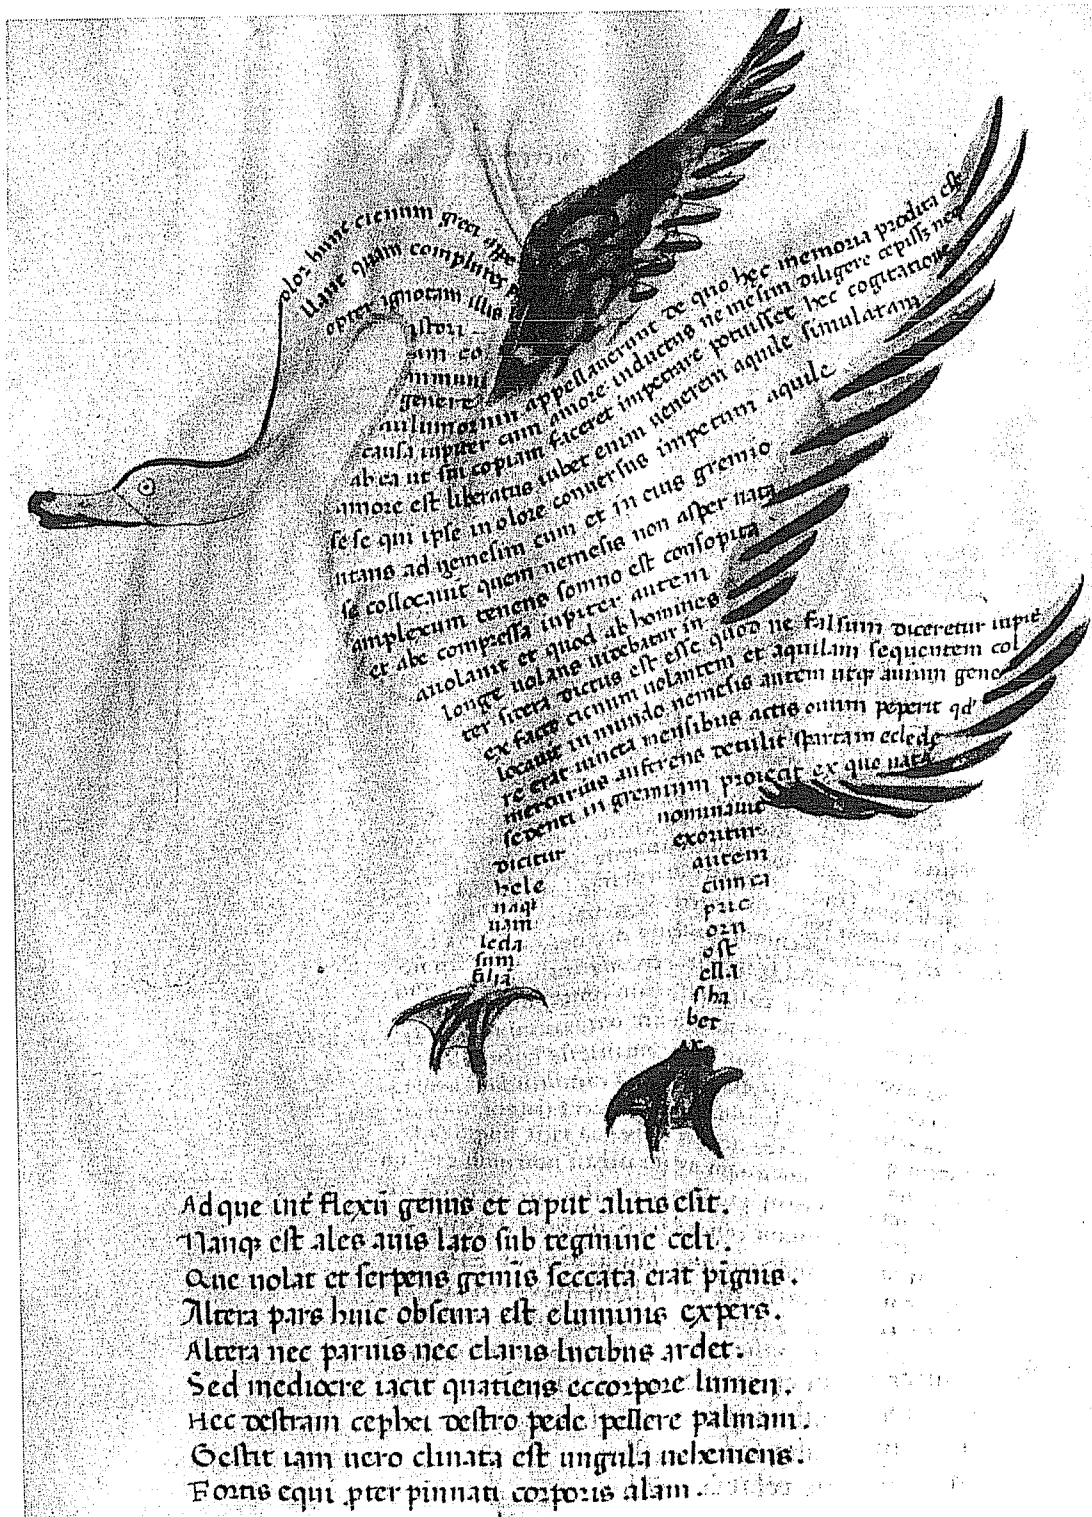 olor hunc cicnum greci appe
llant quam complures p
opter ignotam illis h
istori
am co
mmuni
genere
auium olorum appellauerunt de quo hec memoria prodita est
causa iupiter cum amore inductus nemesim diligere cepisset neq
ab ea ut sui copiam faceret impetrare potuisset hac cogitatione
amore est liberatus iubet enim uenerem aquile simulatam
se se qui ipse in olore conuersus impetum aquile
uitans ad nemesim cum et in eius gremio
se collocauit quem nemesis non aspernata
amplexum tenens somno est consopita
et abe compressa iupiter autem
auolauit et quod ab homines
longe uolans uidebatur in
ter sidera dictus est esse quod ne falsum diceretur iupit
ex facto cicnum uolantem et aquilam sequentem col
locauit in mundo nemesis autem utip auium gene
re erat iuncta mensibus actis ouum peperit qd'
mercurius auferens detulit spartam eclede
sedenti in gremium proiecit ex quo nata
dicitur
hele
naq
nam
leda
suam
filiā
nominauit
exoritur
autem
cum ca
pric
orn
o st
ella
s ha
bet
Ad que int flexū genus et caput alitis esit.
Nanq est ales auis lato sub tegmine celi.
Que uolat et serpens geminis seccata erat pignis.
Altera pars huic obscura est eluminis expers.
Altera nec paruis nec claris lucibus ardet.
Sed mediocre iacit quatiens eccorpore lumen.
Hec destram cephei destro pede pellere palmam.
Gestit iam uero clinata est ungula uehemens.
Fortis equi pter pinnati corporis alam.